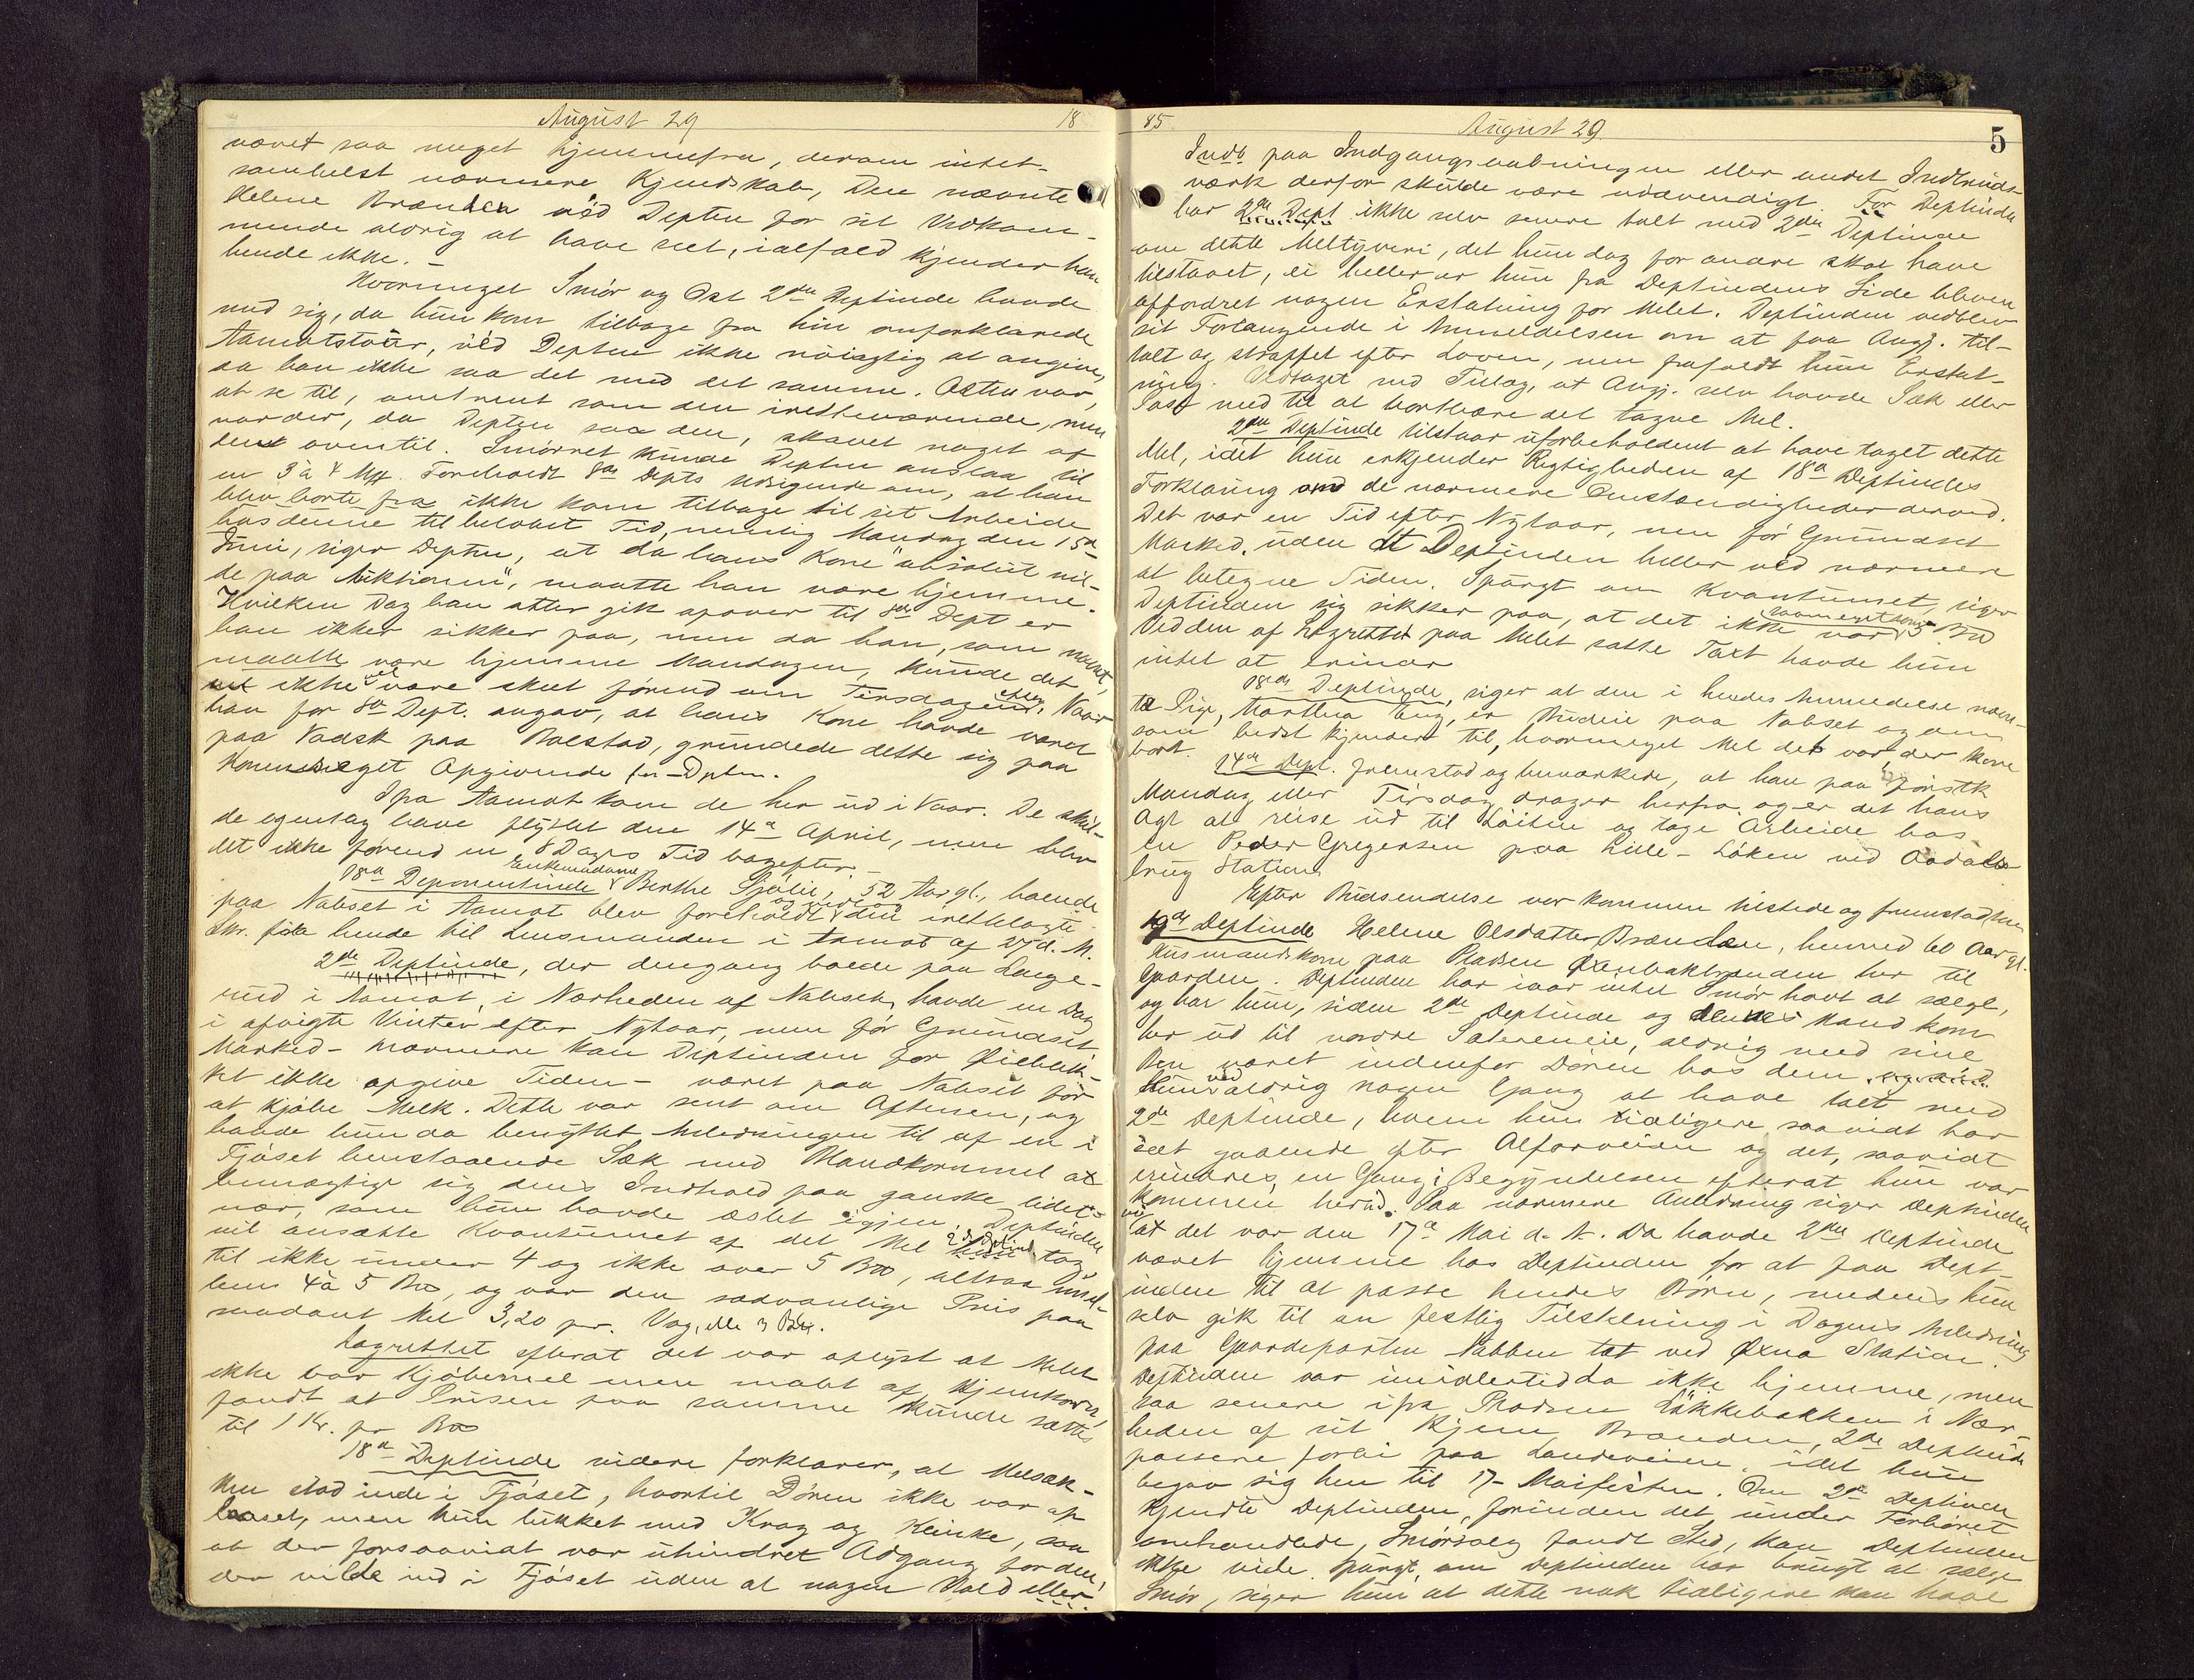 August 29
18
været saa meget hjemmefra, derom intet-
somhelst nærmere Kjendskab, Den nævnte
Helene Brænden véd Depten for sit Vedkom-
mende aldrig at have seet, ialfald kjender han
hende ikke. –
Hvormeget Smör og Ost 2den Deptinde havde
med sig, da hun kom tilbage fra hin omforklarede
Aamotstour, véd Depten ikke nöiagtig at angive,
da han ikke saa det med det samme. Osten var,
at se til, omtrent som den iretteværende, men
var der, da Depten saa den, skavet noget af
den oventil. Smörret kunde Depten anslaa til
en 3 à 4 Mk. Foreholdt 8de Depts Udsigende om, at han
blev borte fra ikke kom tilbage til sit Arbeide
hos denne til belovet Tid, nemlig Mandag den 15de
Juni, siger Depten, at da hans Kone "absolut vil-
de paa Auktionen", maatte han være hjemme.
Hvilken Dag han atter gik opover til 8de Dept er
han ikke sikker paa, men da han, som nævnt,
maatte være hjemme Mandagen, kunde det
ikke vel være skeet förend om Tirsdagen. Naar
han for 8de Dept. angav, at hans Kone havde været
paa Vadsk paa Rolstad, grundede dette sig paa
Konens eget Opgivende for Dpten.
Ifra Aamot kom de her ud i Vaar. De skul-
de egentlig have flyttet den 14de April, men blev
det ikke förend en 8 Dages Tid bagefter.
18de Deponentinde Enkemadame Berthe Sjölie, 52 Aar gl., boende
paa Nabset i Aamot blev foreholdt den iretlagte
Skr. fra hende til Lensmanden i Aamot af 27 d. M.
2de Deptinde, der dengang boede paa Lange-
rud i Aamot, i Nærheden af Nabset, havde en Dag
i afvigte Vinter efter Nytaar, men för Grundset
Marked – nærmere kan Deptinden for Öieblik-
ket ikke opgive Tiden – været paa Nabset för
at kjöbe Melk. Dette var sent om Aftenen, og
havde hun da benyttet Anledningen til af en i
Fjöset henstaaende Sæk med Blandkornmel at
bemægtige sig dens Indhold paa ganske lidet
nær, som hun havde æslet igjen. Deptinden
vil ansætte Kvantumet af det Mel 2de Deptinde tog
til ikke under 4 og ikke over 5 Bd, altsaa imel-
lem 4 à 5 Bd, og var den sædvanlige Pris paa
saadant Mel 3,20 pr. Vog, eller 3 Bd.
Lagrettet efterat det var oplyst at Melet
ikke var Kjöbemel men malet af Hjemkorn,
fandt at Prisen paa samme kunde sættes
til 1 Kr. pr Bd
18de Deptinde videre forklarer, at Melsæk-
ken stod inde i Fjöset, hvortil Dören ikke var af-
laaset, men kun lukket med Krog og Keinke, saa
at der forsaavidt var uhindret Adgang for den,
der vilde ind i Fjöset uden at nogen Vold eller
85
August 29
5
Indb paa Indgangsaabningen eller andet Indbruds-
værk derfor skulde være nödvendigt. For Deptinden
har 2de Dept ikke selv senere talt med 2den Deptinde
om dette Meltyveri, det hun dog for andre skal have
tilstaaet, ei heller er hun fra Deptindens Side bleven
affordret nogen Erstatning for Melet. Deptinden vedblev
sit Forlangende i Anmeldelsen om at faa Angj. til-
talt og straffet efter Loven, men frafaldt hun Erstat-
ning. Vedtaget med Tillæg, at Angj. selv havde Sæk eller
Pose med til at bortbære det tagne Mel.
2den Deptinde tilstaar uforbeholdent at have taget dette
Mel, idet hun erkjender Rigtigheden af 18de Deptindes
Forklaring om de nærmere Omstændigheder derved.
Det var en Tid efter Nytaar, men för Grundset
Marked, uden at Deptinden heller ved nærmere
at betegne Tiden. Spurgt om Kvantumet, siger
Deptinden sig sikker paa, at det ikke var 5 Bd
Ved den af Lagrettet paa Melet satte Taxt havde hun
intet at erindre
18de Deptinde, siger at den i hendes Anmeldelse nævn-
te Pige, Marthea Eng, er Budeie paa Nabset og den
som bedst kjender til, hvormeget Mel det var, der kom
bort.
14de Dept. fremstod og bemærkede, at han paa förstk
Mandag eller Tirsdag drager herfra, og er det hans
Agt at reise ud til Löiten og tage Arbeide hos
en Peder Gregersen paa Lille-Löken ved Aadals-
brug Station
Efter Budsendelse var kommen tilstede og fremstod som
19de Deptinde Helene Olsdatter Brænden, henved 60 Aar gl.
Husmandskone paa Pladsen Öxnbakbrænden her til
Gaarden. Deptinden har ivaar intet Smör havt at sælge,
og har hun, siden 2de Deptinde og dennes Mand kom
her ud til nordre Sætereie, aldrig med sine
Ben været indenfor Dören hos dem
Hun ved aldrig nogen Gang at have talt med
2de Deptinde, hvem hun tidligere saavidt har
seet gaaende efter Alfarveien og det, saavidt
erindres, en Gang i Begyndelsen efterat hun var
kommen herud. Paa nærmere Anledning siger Deptinden
at det var den 17de Mai d. A. Da havde 2den Deptinde
været hjemme hos Deptinden for at faa Dept-
inden til at passe hendes Börn, medens hun
selv gik til en festlig Tilstelning i Dagens Anledning
paa Gaardeparten Nabben tæt ved Öxna Station.
Deptinden var imidlertid da ikke hjemme, men
saa senere ifra Pladsen Lökkebakken i Nær-
heden af sit Hjem Brænden, 2de Deptinde
passere forbi paa Landeveien, idet hun
begav sig hen til 17-Maifesten. Om 2de Deptinde
kjendte Deptinden, forinden det under Forhöret
omhandlede, Smörsalg fandt Sted, kan Deptinden
ikke vide. Spurgt, om Deptinden har brugt at sælge
Smör, siger hun at dette nok tidligere kan have